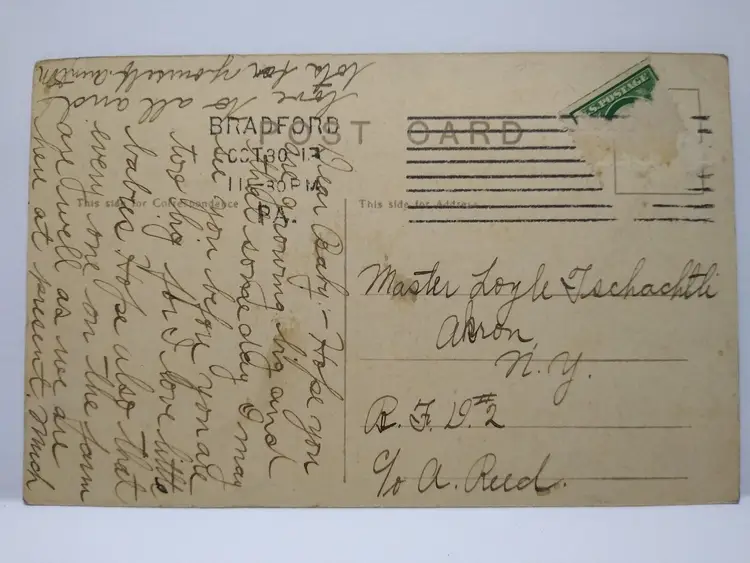 POST CARD
U.S. POSTAGE
BRADFORD
OCT 30 13
11 30 PM
PA.
This side for Correspondence
This side for Address
Dear Baby:- Hope you
are growing big and
that some day I may
see you before you are
too big for I love little
babies Hope also that
every one on the farm
are well as we are
here at present. Much
love to all and
lots for yourself.
Master Loyle Tschachtli
Akron,
N.Y.
R.F.D. #2
c/o A. Reed.